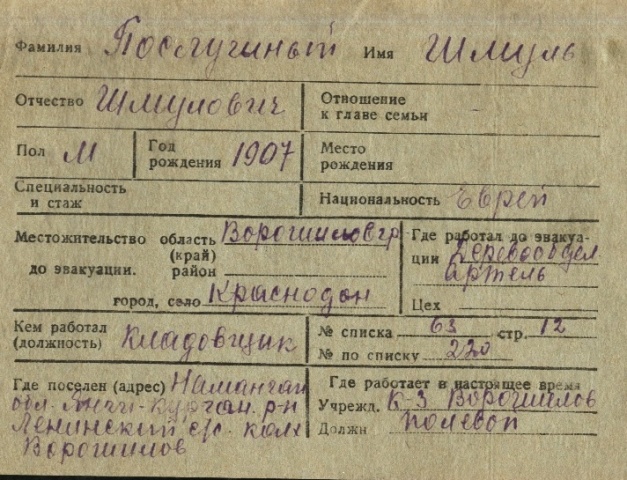 Фамилия Послушный Имя Шмуль
Отчество Шмулович
Отношение к главе семьи
Пол М
Год рождения 1907
Место рождения
Специальность и стаж
Национальность Еврей
Местожительство до эвакуации. область (край) Ворошиловгр
район
город, село Краснодон
Где работал до эвакуации Деревообдел артель
Цех
Кем работал (должность) Кладовщик
№ списка 63 стр. 12
№ по списку 220
Где поселен (адрес) Наманган
обл. Янги-Курган. р-н
Ленинский с/с. колх
Ворошилов
Где работает в настоящее время
Учрежд. к-з Ворошилов
Должн полевод